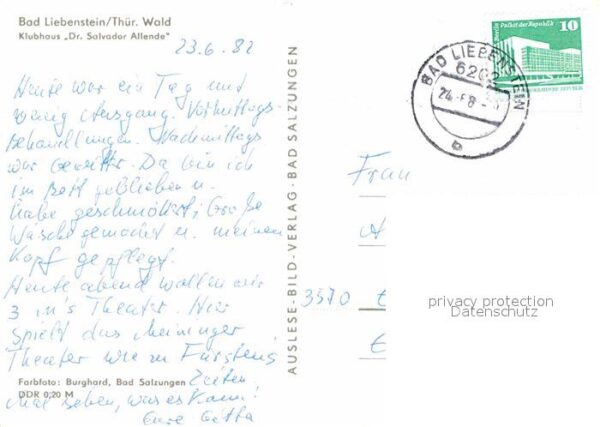 Bad Liebenstein/Thür. Wald
Klubhaus „Dr. Salvador Allende"
23.6.82
Heute war ein Tag mit
wenig Ausgang. Vormittags
Behandlungen. Nachmittags
war Gewitter. Da bin ich
im Bett geblieben u.
habe geschmökert, Große
Wäsche gemacht u. meinen
Kopf gepflegt.
Heute abend wollen wir
3 in's Theater. Hier
spielt das Meininger
Theater wie zu Fürstens
Zeiten.
Mal sehen, was es kann!
Eure Gitta
Farbfoto: Burghard, Bad Salzungen
DDR 0,20 M
AUSLESE-BILD-VERLAG · BAD SALZUNGEN
BAD LIEBENSTEIN
6202
24.-6.8
b
Palast der Republik
Berlin
10
Frau
A
3570
privacy protection
Datenschutz